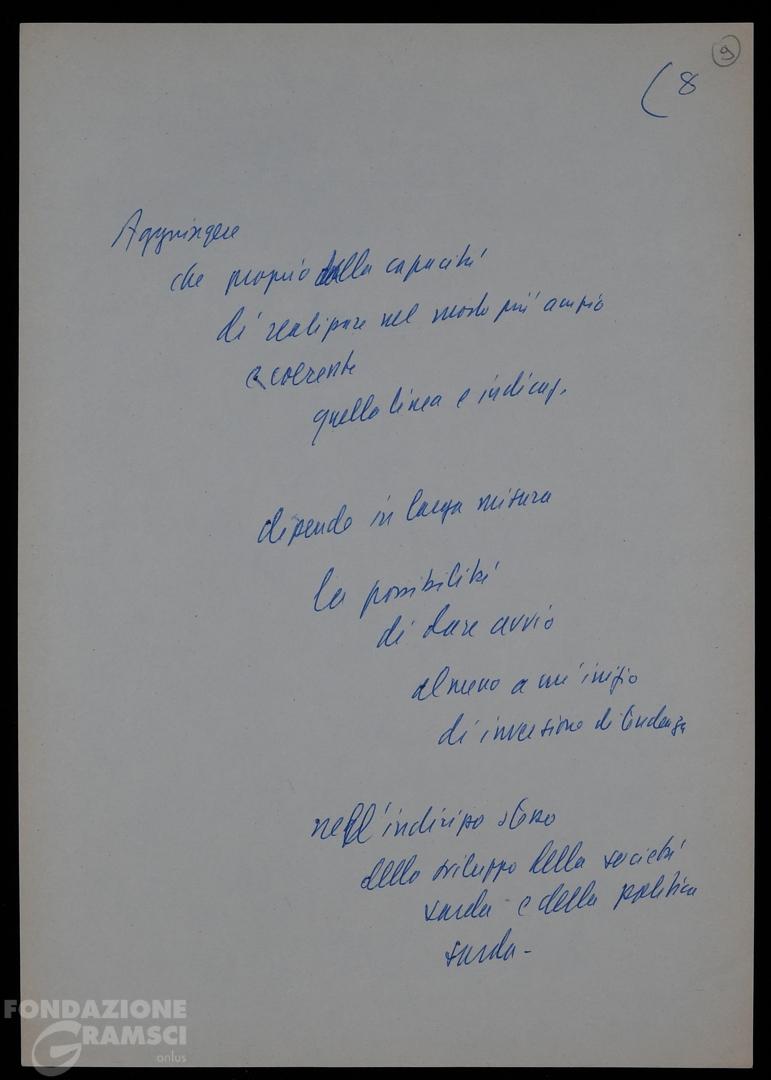 9
(8
Aggiungere
che proprio dalla capacità
di realizzare nel modo più ampio
e coerente
quella linea e indicaz.
dipende in larga misura
la possibilità
di dare avvio
almeno a un' inizio
di inversione di tendenza
nell'indirizzo stesso
dello sviluppo della società
sarda e della politica
sarda -
FONDAZIONE
GRAMSCI
onlus